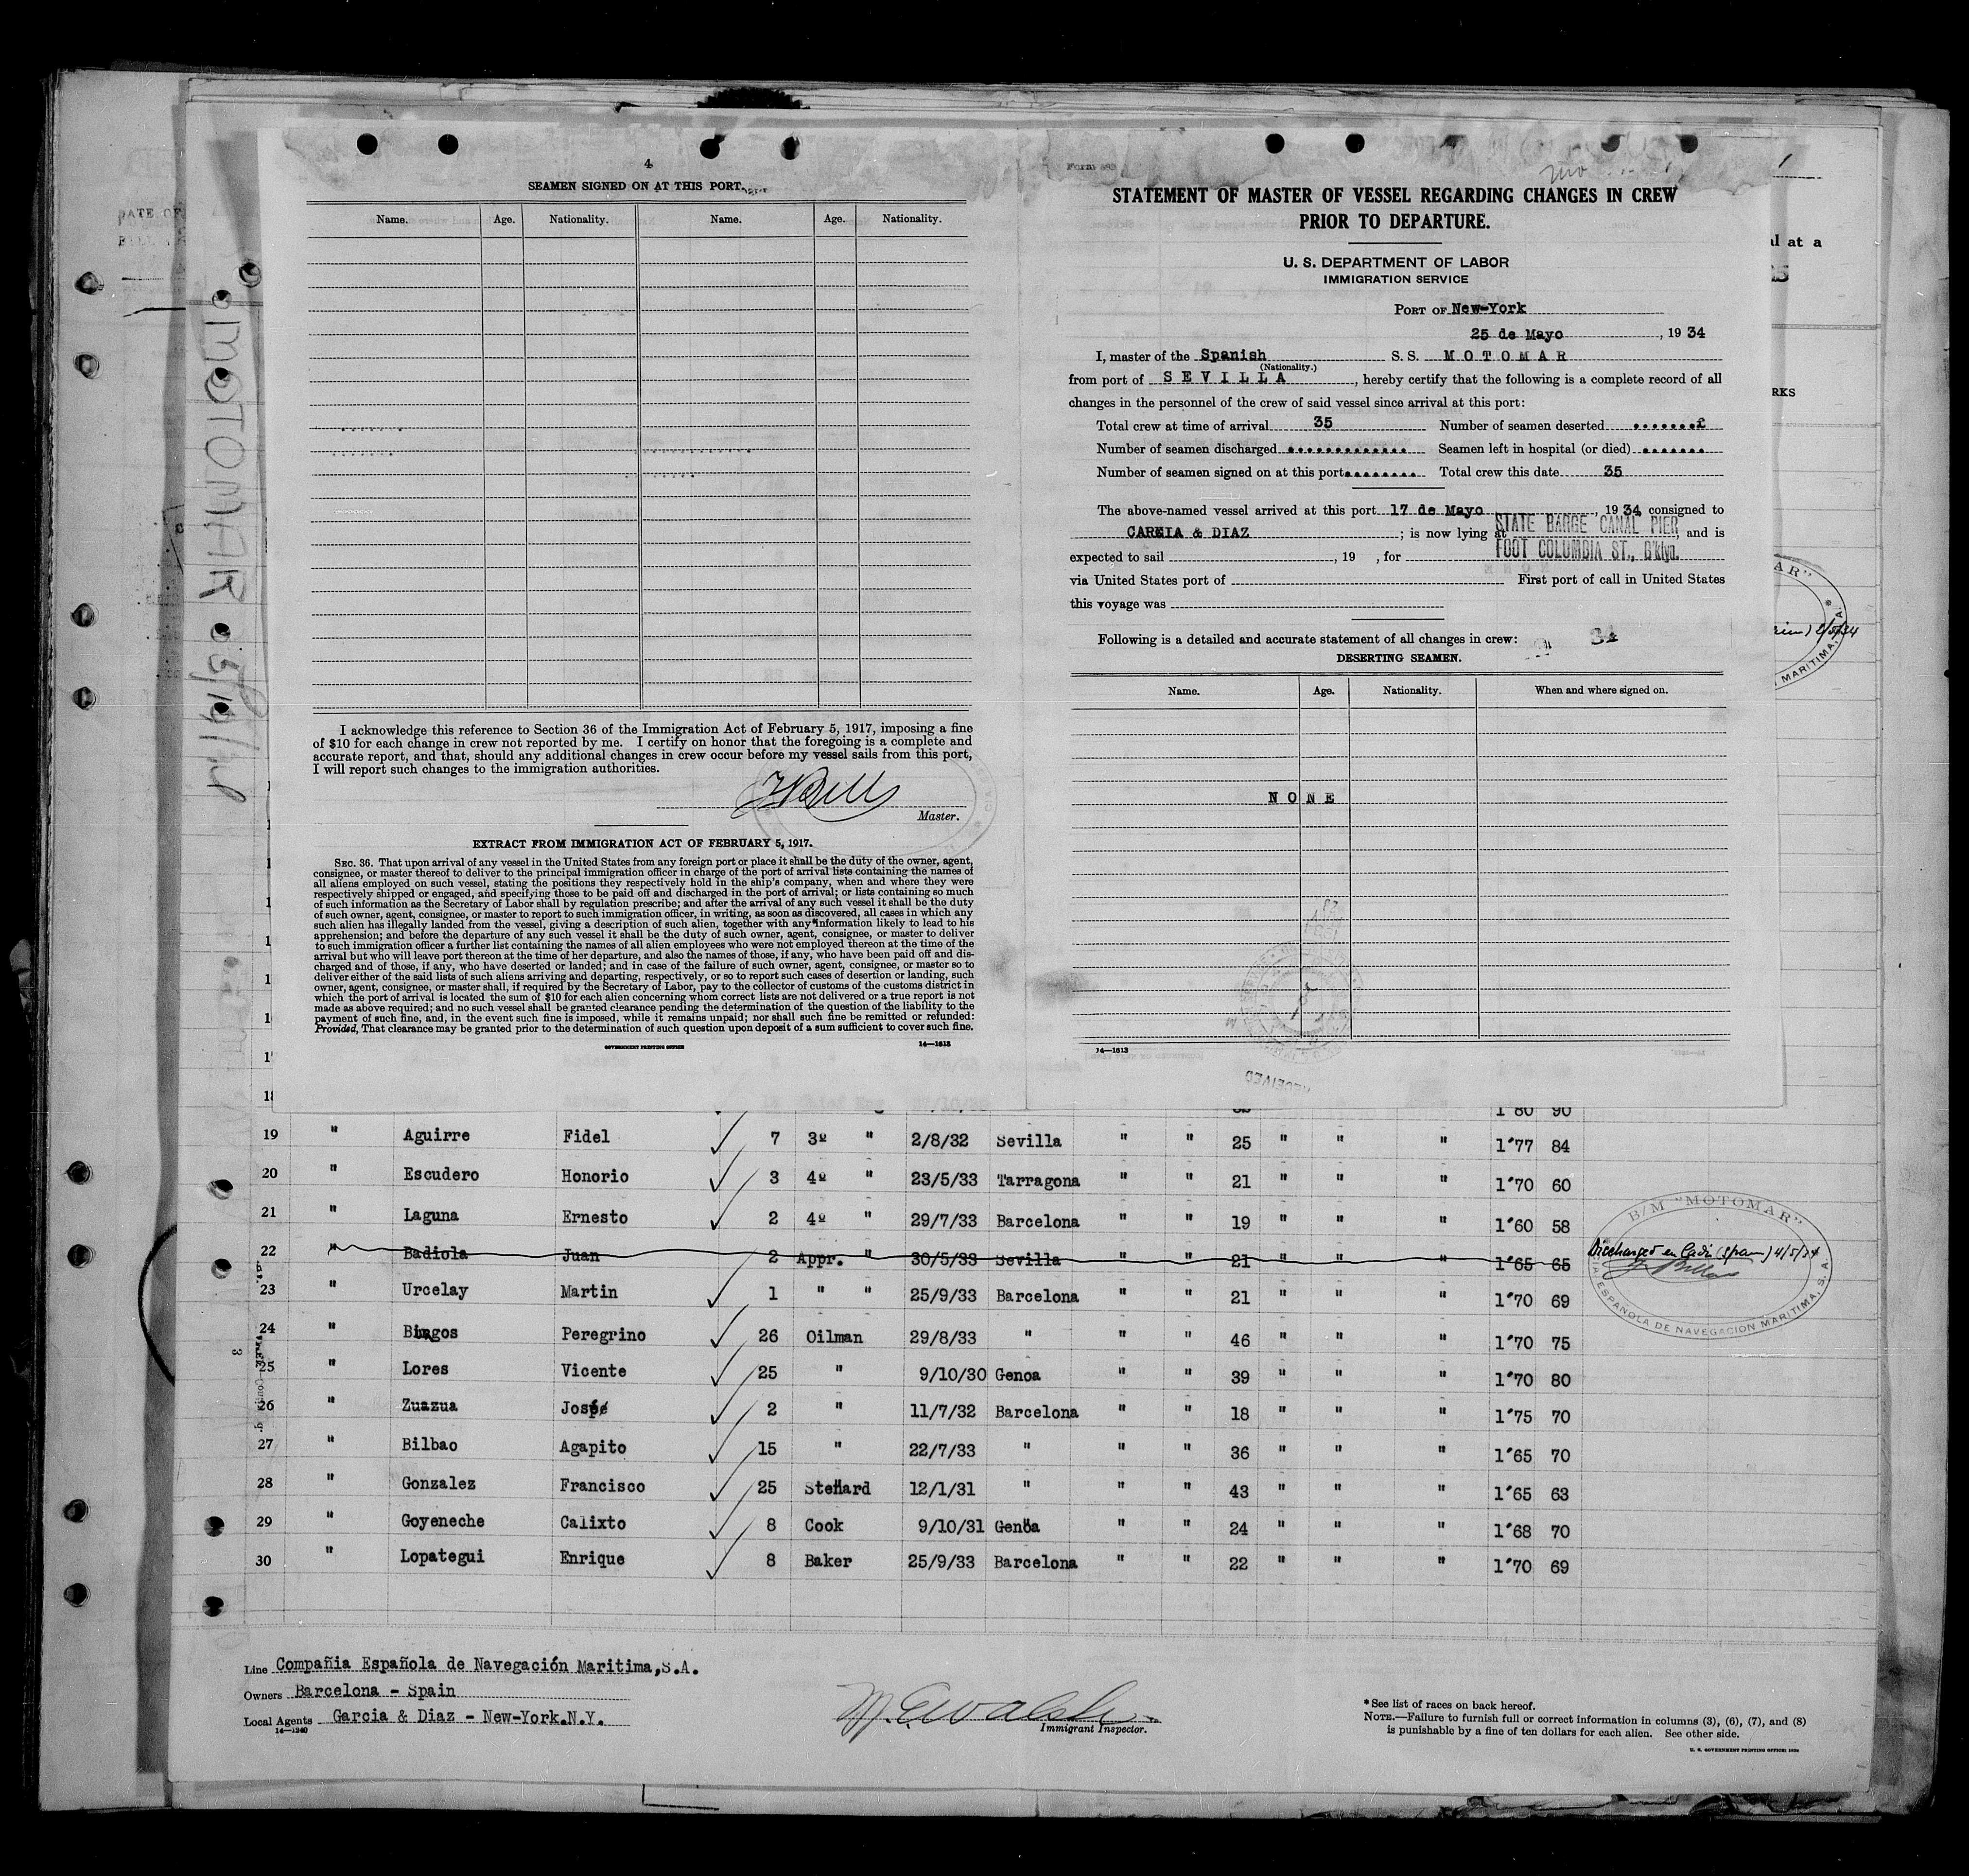 4
SEAMEN SIGNED ON AT THIS PORT
Name. Age. Nationality. Name. Age. Nationality.
I acknowledge this reference to Section 36 of the Immigration Act of February 5, 1917, imposing a fine
of $10 for each change in crew not reported by me. I certify on honor that the foregoing is a complete and
accurate report, and that, should any additional changes in crew occur before my vessel sails from this port,
I will report such changes to the immigration authorities.
Master.
EXTRACT FROM IMMIGRATION ACT OF FEBRUARY 5, 1917.
SEC. 36. That upon arrival of any vessel in the United States from any foreign port or place it shall be the duty of the owner, agent,
consignee, or master thereof to deliver to the principal immigration officer in charge of the port of arrival lists containing the names of
all aliens employed on such vessel, stating the positions they respectively hold in the ship's company, when and where they were
respectively shipped or engaged, and specifying those to be paid off and discharged in the port of arrival; or lists containing so much
of such information as the Secretary of Labor shall by regulation prescribe; and after the arrival of any such vessel it shall be the duty
of such owner, agent, consignee, or master to report to such immigration officer, in writing, as soon as discovered, all cases in which any
such alien has illegally landed from the vessel, giving a description of such alien, together with any information likely to lead to his
apprehension; and before the departure of any such vessel it shall be the duty of such owner, agent, consignee, or master to deliver
to such immigration officer a further list containing the names of all alien employees who were not employed thereon at the time of the
arrival but who will leave port thereon at the time of her departure, and also the names of those, if any, who have been paid off and dis-
charged and of those, if any, who have deserted or landed; and in case of the failure of such owner, agent, consignee, or master so to
deliver either of the said lists of such aliens arriving and departing, respectively, or so to report such cases of desertion or landing, such
owner, agent, consignee, or master shall, if required by the Secretary of Labor, pay to the collector of customs of the customs district in
which the port of arrival is located the sum of $10 for each alien concerning whom correct lists are not delivered or a true report is not
made as above required; and no such vessel shall be granted clearance pending the determination of the question of the liability to the
payment of such fine, and, in the event such fine is imposed, while it remains unpaid; nor shall such fine be remitted or refunded:
Provided, That clearance may be granted prior to the determination of such question upon deposit of a sum sufficient to cover such fine.
GOVERNMENT PRINTING OFFICE 14—1613
STATEMENT OF MASTER OF VESSEL REGARDING CHANGES IN CREW
PRIOR TO DEPARTURE.
U. S. DEPARTMENT OF LABOR
IMMIGRATION SERVICE
PORT OF New-York
25 de Mayo, 1934
I, master of the Spanish S. S. MOTOMAR
(Nationality.)
from port of SEVILLA, hereby certify that the following is a complete record of all
changes in the personnel of the crew of said vessel since arrival at this port:
Total crew at time of arrival 35 Number of seamen deserted
Number of seamen discharged Seamen left in hospital (or died)
Number of seamen signed on at this port Total crew this date 35
The above-named vessel arrived at this port 17 de Mayo, 1934 consigned to
GARCIA & DIAZ; is now lying at STATE BARGE CANAL PIER, and is
FOOT COLUMBIA ST., B'klyn.
expected to sail , 19 , for
via United States port of First port of call in United States
this voyage was
Following is a detailed and accurate statement of all changes in crew:
DESERTING SEAMEN.
Name. Age. Nationality. When and where signed on.
NONE
14—1613
RECEIVED
MOTOMAR
al at a
RKS
1'80 90
19 " Aguirre Fidel 7 3º " 2/8/32 Sevilla " " 25 " " " 1'77 84
20 " Escudero Honorio 3 4º " 23/5/33 Tarragona " " 21 " " " 1'70 60
21 " Laguna Ernesto 2 4º " 29/7/33 Barcelona " " 19 " " " 1'60 58
22 " Badiola Juan 2 Appr. " 30/5/33 Sevilla " " 21 " " " 1'65 65 Discharged en Cadiz (Spain) 4/5/34
23 " Urcelay Martin 1 " " 25/9/33 Barcelona " " 21 " " " 1'70 69
24 " Bingos Peregrino 26 Oilman 29/8/33 " " " 46 " " " 1'70 75
25 " Lores Vicente 25 " 9/10/30 Genoa " " 39 " " " 1'70 80
26 " Zuazua José 2 " 11/7/32 Barcelona " " 18 " " " 1'75 70
27 " Bilbao Agapito 15 " 22/7/33 " " " 36 " " " 1'65 70
28 " Gonzalez Francisco 25 Steward 12/1/31 " " " 43 " " " 1'65 63
29 " Goyeneche Calixto 8 Cook 9/10/31 Genoa " " 24 " " " 1'68 70
30 " Lopategui Enrique 8 Baker 25/9/33 Barcelona " " 22 " " " 1'70 69
B/M "MOTOMAR"
CIA ESPAÑOLA DE NAVEGACION MARITIMA, S. A.
Line Compañia Española de Navegación Maritima,S.A.
Owners Barcelona - Spain
Local Agents Garcia & Diaz - New-York.N.Y.
14—1240
M. E. Walsh
Immigrant Inspector.
* See list of races on back hereof.
NOTE.—Failure to furnish full or correct information in columns (3), (6), (7), and (8)
is punishable by a fine of ten dollars for each alien. See other side.